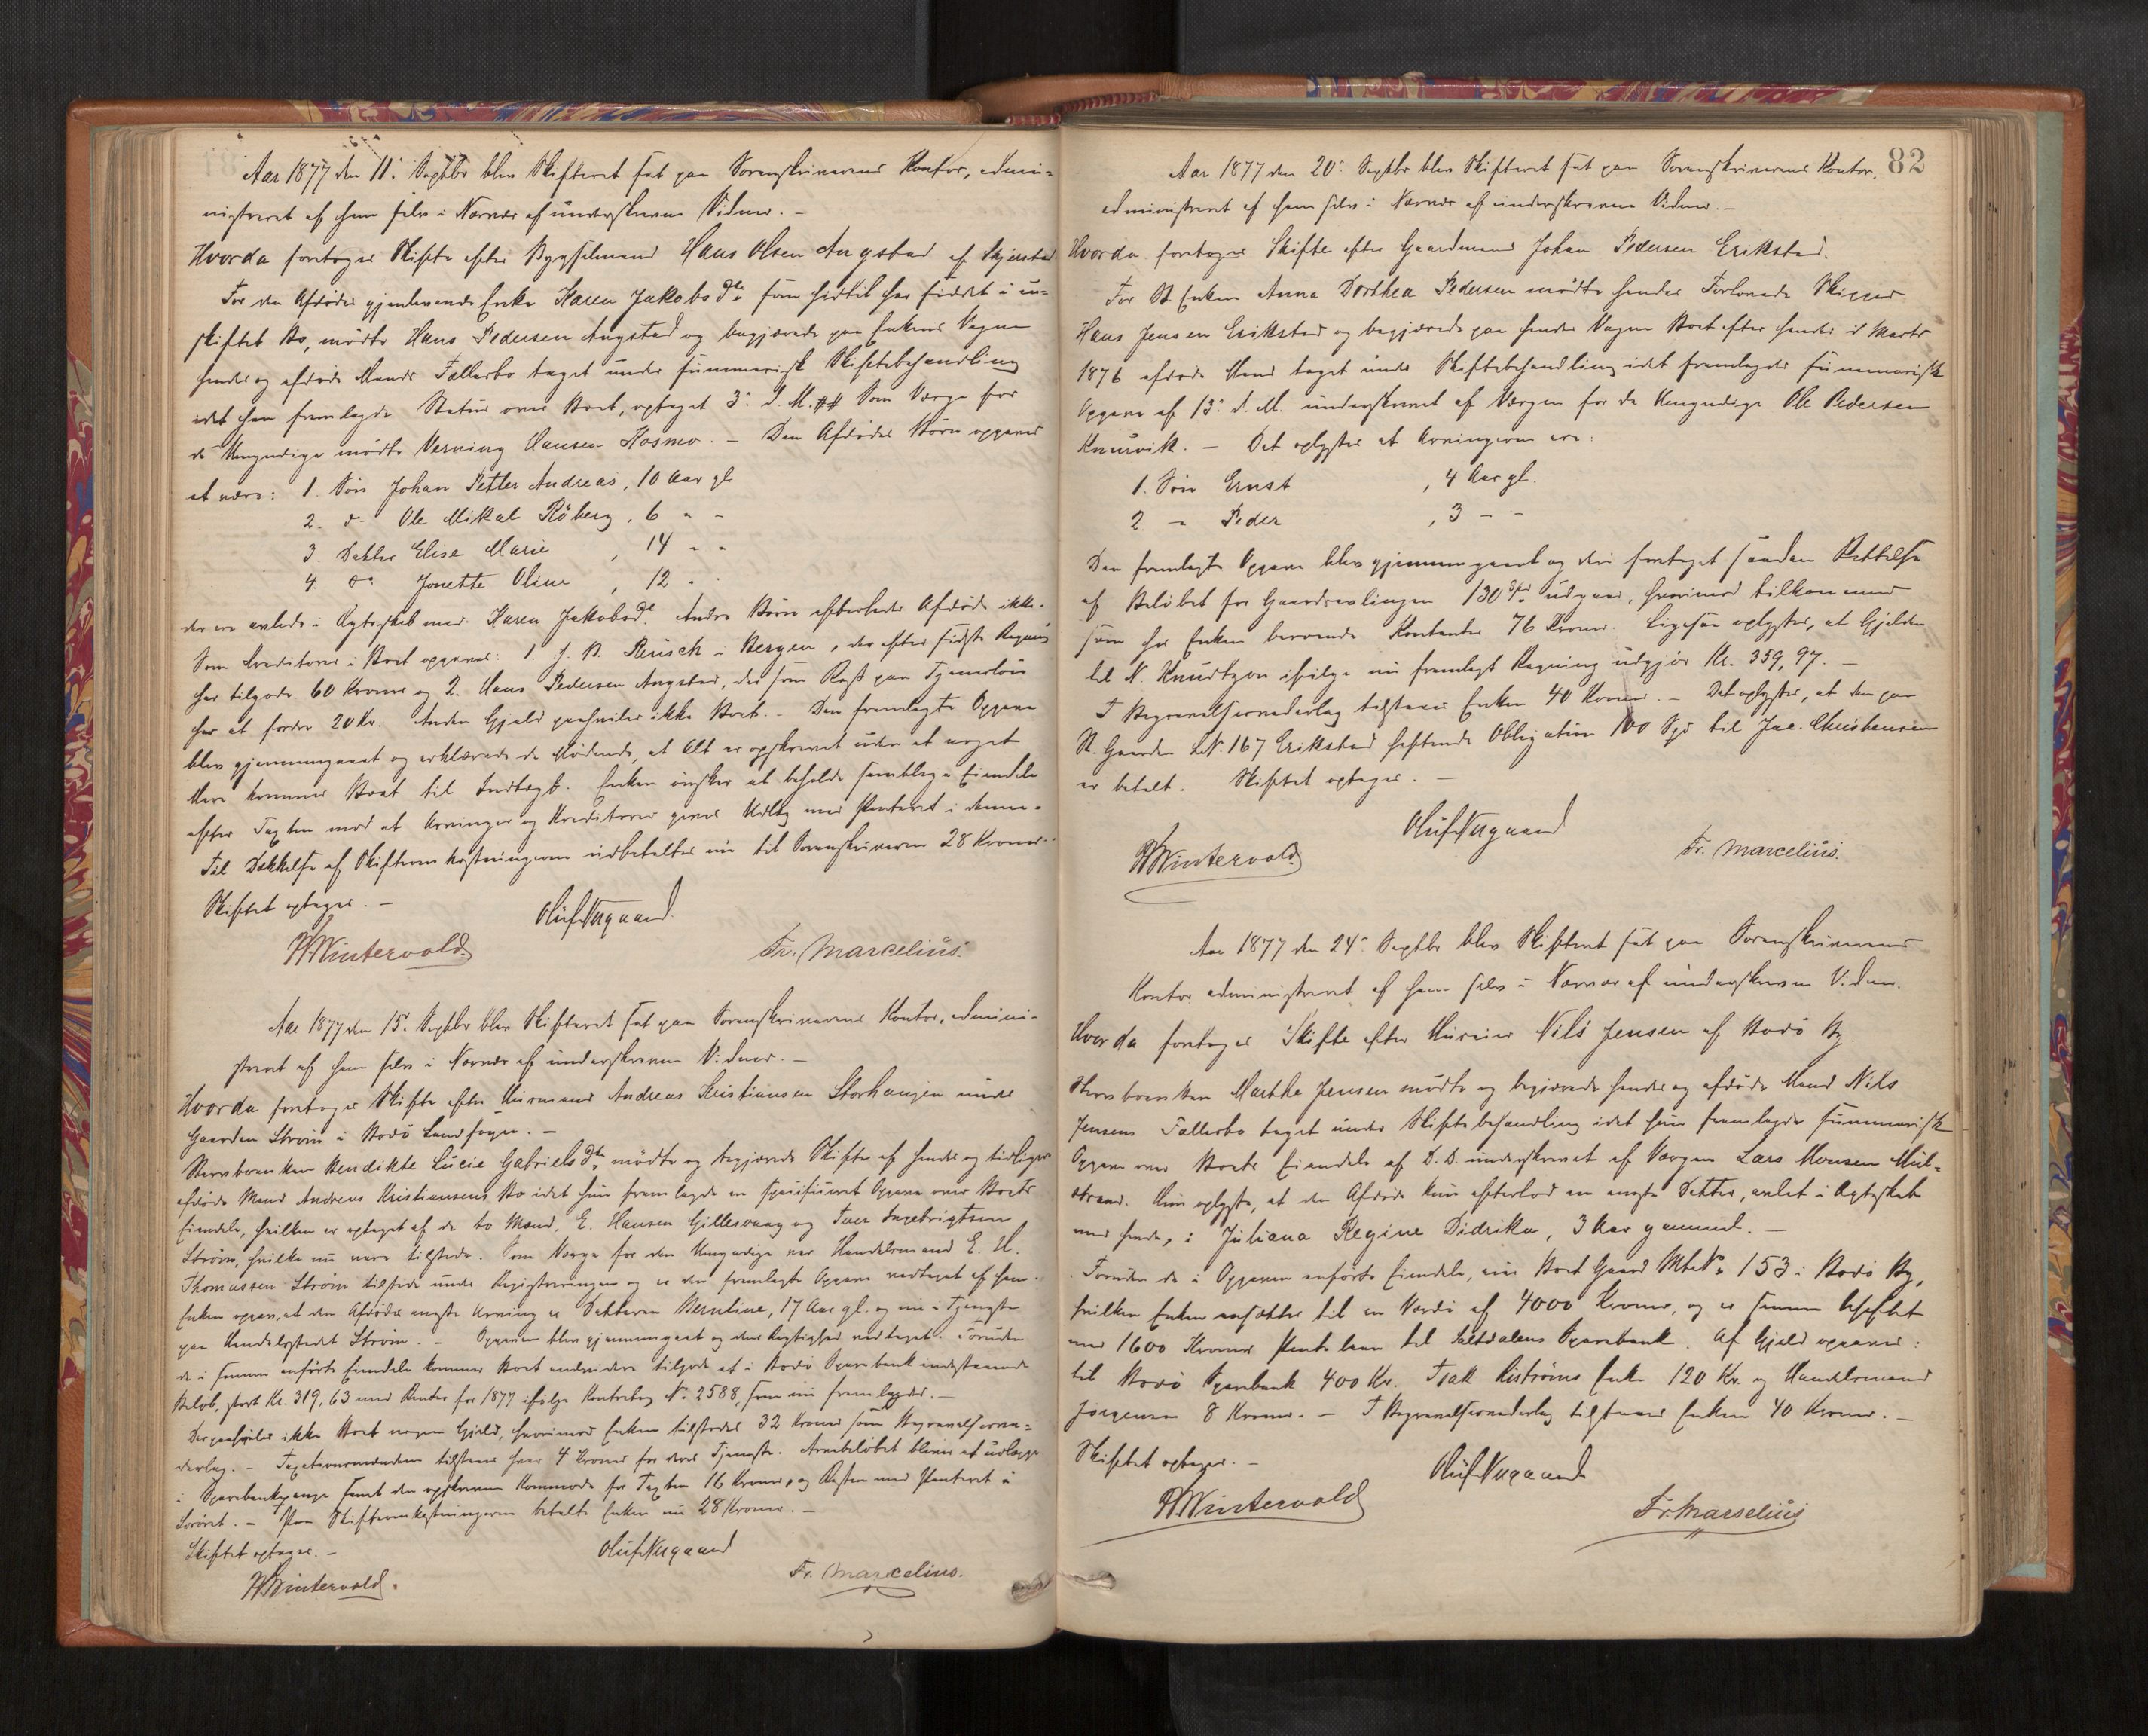 Aar 1877 den 11. Septbr blev Skifteret sat paa Sorenskriverens Kontor, admini-
nistreret af ham selv i Nærvær af underskrevne Vidner. -
Hvorda foretoges Skifte efter Bygselmand Hans Olsen Angstad af Skjerstad
For den Afdødes gjenlevende Enke Karen Jakobsdtr. som hidtil har siddet i u-
skiftet Bo, mødte Hans Pedersen Angstad og begjærede paa Enkens Vegne
hendes og afdøde Mands Fællesbo taget under summarisk Skiftebehandling
idet han fremlagde Status over Boet, optaget 3. d. M. Som Værge for
de Umyndige mødte Verning Hansen Kosmo. - Den Afdødes Børn opgaves
at være: 1. Søn Johan Petter Andreas, 10 Aar gl
2. do Ole Mikal Röberg, 6 " -
3. Datter Elise Marie , 14 " "
4. do Jonette Oline , 12 "
der ere avlede i Ægteskab med Karen Jakobsd. Andre Børn efterlader Afdøde ikke.
Som Creditorer i Boet opgaves: 1. J. B. i Bergen, der efter sidste Regning
har tilgode 60 Kroner og 2. Hans Pedersen Angstad, der som Rest paa Tjenerløn
har at fordre 20 Kr. Anden Gjæld paahviler ikke Boet. - Den fremlagte Opgave
blev gjennemgaaet og erklærede de Mødende, at Alt er opskrevet uden at noget
Mere kommer Boet til Indtægt. Enken ønsker at beholde samtlige Eiendele
efter Taxten mod at Arvinger og Kreditorer gives Udlæg med Panteret i denne.
Til Dækkelse af Skifteomkostningerne udbetaltes nu til Sorenskriveren 28 Kroner.
Skiftet optages. -
Oluf Aagaard.
H. Wintervold. Fr. Marcelius.
Aar 1877 den 15. Septbr blev Skifteret sat paa Sorenskriverens Kontor, admini-
streret af ham selv i Nærvær af underskrevne Vidner. -
Hvorda foretoges Skifte efter Huusmand Andreas Kristiansen Storhaugen under
Gaarden Strøm i Bodö Landsogn. -
Stervboenken Bendikte Lucie Gabrielsdtr. mødte og begjærede Skifte af hendes og tidligere
afdøde Mand Andreas Kristiansens Bo idet hun fremlagde en specificeret Opgave over Boets
Eiendele, hvilken er optaget af de to Mænd, E. Hansen Gillesvaag og Iver Ingebrigtsen
Strøm, hvilke nu vare tilstede. Som Værge for den Umyndige var Handelsmand E. H.
Thomassen Strøm tilstede under Registreringen og er den fremlagte Opgave vedtaget af ham.
Enken opgav, at den Afdødes eneste Arving er Datteren Berntine, 17 Aar gl. og nu i Tjeneste
paa Handelsstedet Strøm. - Opgaven blev gjennemgaaet og dens Rigtighed vedtaget. Foruden
de i samme anførte Eiendele kommer Boet endvidere tilgode et i Bodö Sparebank indestaaende
Beløb, stort Kr. 319,63 med Renter for 1877 ifølge Kontrabog No. 2588, som nu fremlagdes. -
Der paahviler ikke Boet nogen Gjæld, hvorimod Enken tilstodes 32 Kroner som Begravelsesve-
derlag. - Taxationsmændene tilstaaes hver 4 Kroner for deres Tjeneste. Arvebeløbet bliver at udlægge
i Sparebankpenge samt den opskrevne Kommode for Taxten 16 Kroner, og Resten med Panteret i
Løsøret. - Paa Skifteomkostningerne betalte Enken nu 28 Kroner. -
Skiftet optages. -
Oluf Aagaard
H. Wintervold. Fr. Marcelius.
82
Aar 1877 den 20. Septbr blev Skifteret sat paa Sorenskriverens Kontor,
administreret af ham selv i Nærvær af underskrevne Vidner. -
Hvorda foretoges Skifte efter Gaardmand Johan Pedersen Erikstad.
For St. Enken Anna Dorthea Pedersen mødte hendes Forlovede Skipper
Hans Jensen Erikstad og begjærede paa hendes Vegne Boet efter hendes i Marts
1876 afdøde Mand taget under Skiftebehandling idet fremlagdes summarisk
Opgave af 13. d. M. underskrevet af Værgen for de Umyndige Ole Pedersen
Knurvik. - Det oplyses at Arvingerne ere:
1. Søn Ernst , 4 Aar gl.
2. " Peder , 3 - -
Den fremlagte Opgave blev gjennemgaaet og deri foretaget saadan Rettelse
at Beløbet for Gaardsavlingen 130 Spd udgaar, hvorimod tilkommer
som hos Enken beroende Kontanter 76 Kroner. Ligesaa oplystes, at Gjælden
til N. Knudtzon ifølge nu fremlagt Regning udgjør Kr. 359,97. -
I Begravelsesvederlag tilstaaes Enken 40 Kroner. - Det oplystes, at den paa
St. Gaarden LN. 167 Erikstad heftende Obligation 100 Spd til Jac. Christensen
er betalt. Skiftet optages. -
Oluf Aagaard
H. Wintervold. Fr. Marcelius.
Aar 1877 den 24. Septbr blev Skifteret sat paa Sorenskriverens
Kontor administreret af ham selv i Nærvær af underskrevne Vidner.
Hvorda foretoges Skifte efter Huseier Nils Jensen af Bodö By.
Stervboenken Marthe Jensen mødte og begjærede hendes og afdøde Mand Nils
Jensens Fællesbo taget under Skiftebehandling idet hun fremlagde summarisk
Opgave over Boets Eiendele af D. D. underskrevet af Værgen Lars Monsen Mul-
strand. Hun oplyste, at den Afdøde kun efterlod en eneste Datter, avlet i Ægteskab
med hende, : Juliana Regine Didrika, 3 Aar gammel. -
Foruden de i Opgaven anførte Eiendele, eier Boet Gaard Mt. No. 153 i Bodö By,
hvilken Enken ansætter til en Værdi af 4000 Kroner, og er samme beheftet
med 1600 Kroner Pantelaan til Saltdalens Sparebank. Af Gjæld opgaves:
til Bodö Sparebank 400 Kr. Isak Liströms Enke 120 Kr. og Handelsmand
Jørgensen 8 Kroner. - I Begravelsesvederlag tilstaaes Enken 40 Kroner. -
Skiftet optages. -
Oluf Aagaard
H. Wintervold Fr. Marselius